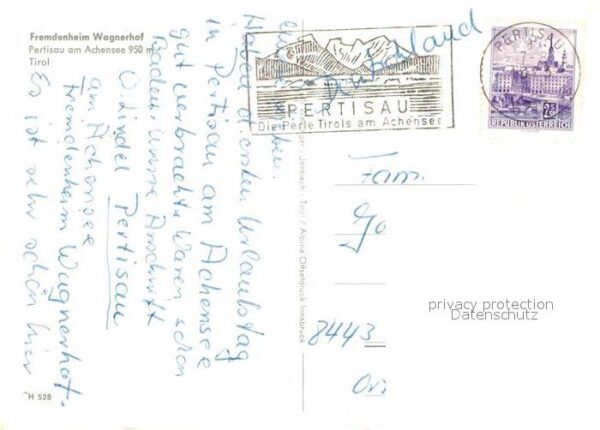 Fremdenheim Wagnerhof
Pertisau am Achensee 950 m
Tirol
Haben d. ersten Urlaubstag
in Pertisau am Achensee
gut verbracht. Waren schon
Baden. Unsre Anschrift
W. Lindel Pertisau
am Achensee
Fremdenheim Wagnerhof.
Es ist sehr schön hier
H 528
Jenbach - Tirol / Alpina Offsetdruck Innsbruck
PERTISAU
Die Perle Tirols am Achensee
Deutschland
PERTISAU
REPUBLIK ÖSTERREICH
Fam.
8443
privacy protection
Datenschutz